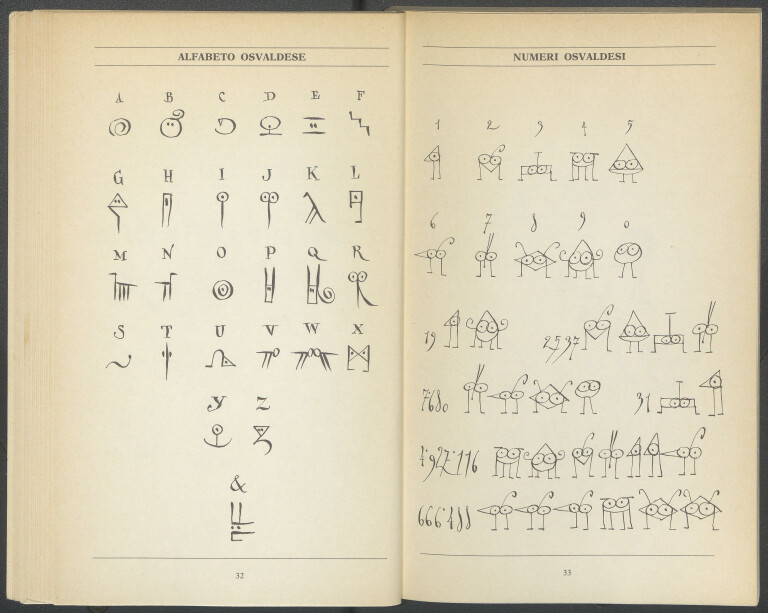 ALFABETO OSVALDESE
A B C D E F
G H I J K L
M N O P Q R
S T U V W X
Y Z
&
32
NUMERI OSVALDESI
1 2 3 4 5
6 7 8 9 0
19 2537
7680 31
4'927'116
666'488
33